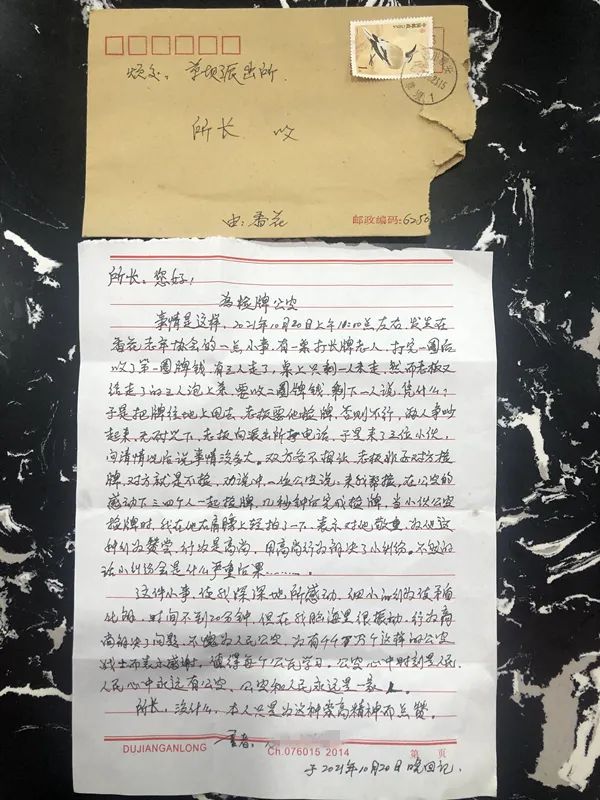 烦交：草坝派出所
所长 收
由：香花
邮政编码：6250
所长：您好！
为捡牌公安
事情是这样，2021年10月20日上午10:00点左右，发生在
香花老年协会的一点小事，有一桌打长牌老人，打完一圈后
收了第一圈牌钱，有三人走了，桌上只剩一人未走，然而老板又
给走了的三人泡上茶，要收二圈牌钱，剩下一人说，凭什么？
于是把牌往地上甩去，老板要他捡牌，否则不行，两人争吵
起来，无奈以下，老板向派出所打电话，于是来了三位小伙，
问清情况后说事情没多大。双方各不相让，老板非要对方捡
牌，对方就是不捡，劝说中一位公安说，来我帮捡，在公安的
感动下三四个人一起捡牌，几秒钟就完成捡牌，当小伙公安
捡牌时，我在他左肩膀上轻拍了一下，表示对他敬重，为他这
种行为赞赏，行为是高尚，用高尚行为解决了小纠纷，不然的
话小纠纷会是什么严重后果………。
这件小事，使我深深地所感动，细小的行为使矛盾
化解，时间不到20分钟，但在我脑海里很振动，行为高
尚解决了问题，不愧为人民公安，为有千千万万个这样的公安
战士而表示感谢，值得每个公民学习。公安心中时刻是人民，
人民心中永远有公安，公安和人民永远是一家人。
所长，没什么，本人只是为这种崇高精神而点赞。
笔者：
DUJIANGANLONG Ch.076015 2014 第 页
于2021年10月20日晚回记.